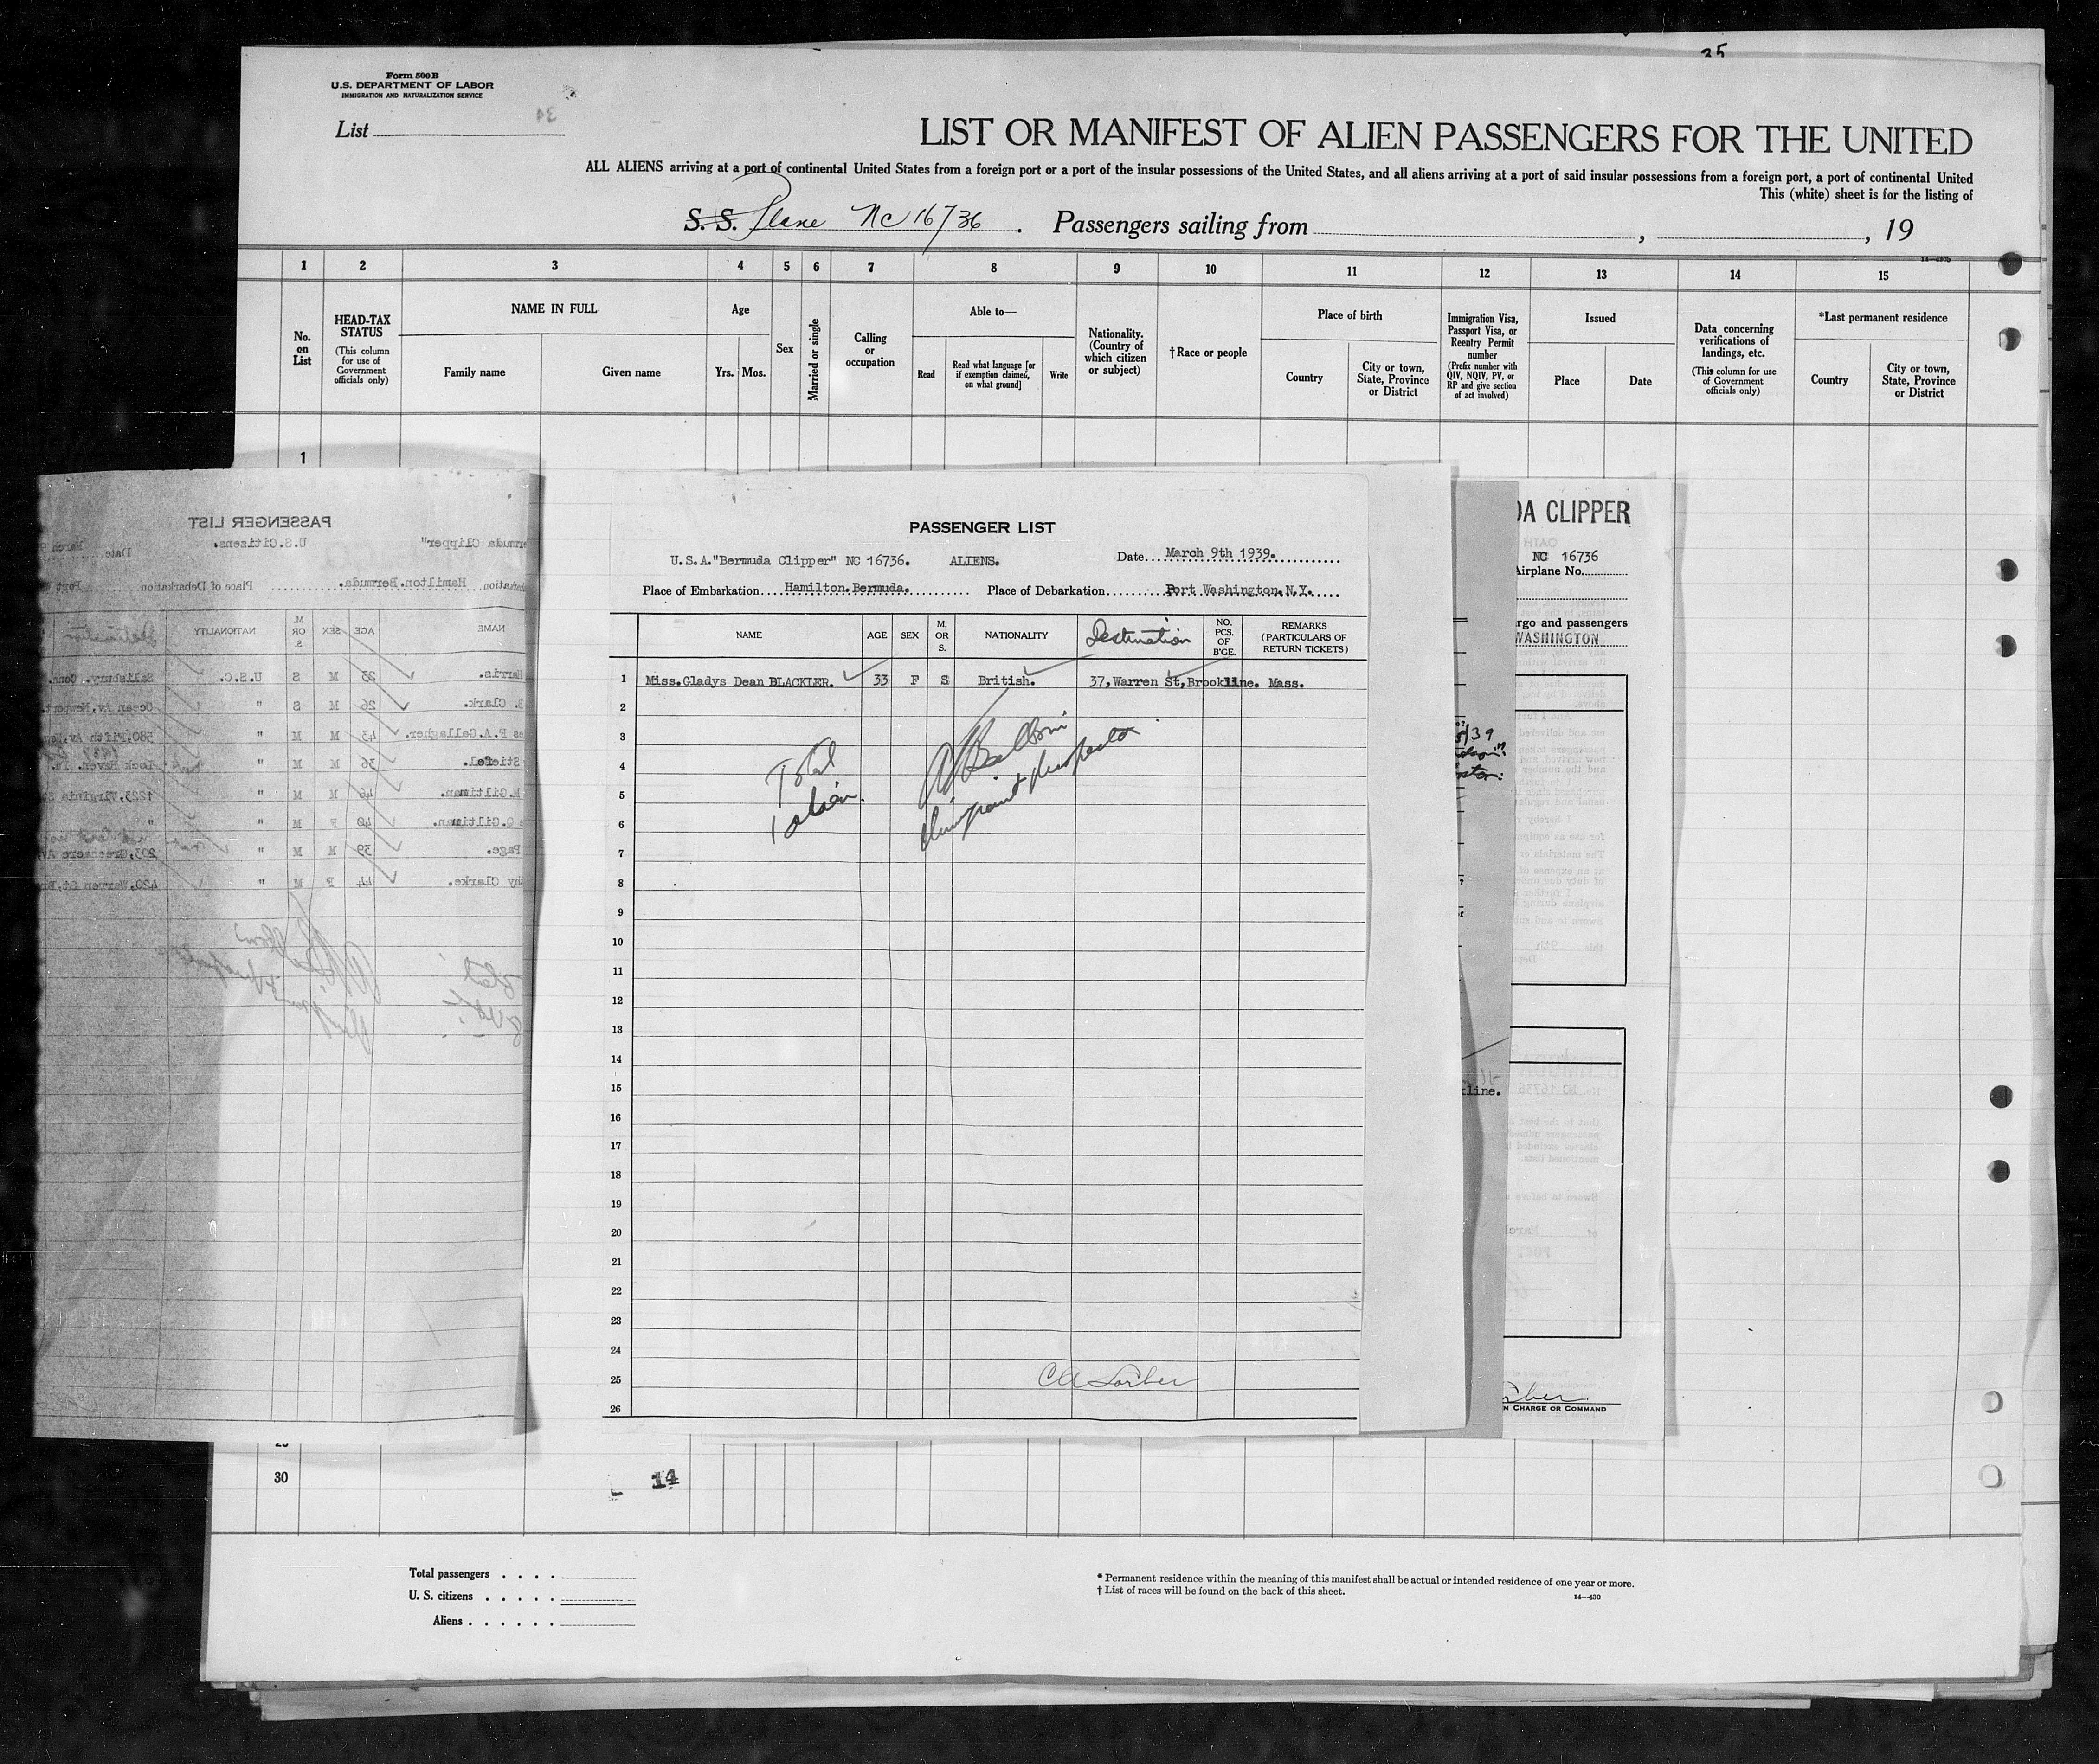 35
Form 500 B
U.S. DEPARTMENT OF LABOR
IMMIGRATION AND NATURALIZATION SERVICE
List
34
LIST OR MANIFEST OF ALIEN PASSENGERS FOR THE UNITED
ALL ALIENS arriving at a port of continental United States from a foreign port or a port of the insular possessions of the United States, and all aliens arriving at a port of said insular possessions from a foreign port, a port of continental United
This (white) sheet is for the listing of
S. S. Plane NC 16736. Passengers sailing from , , 19
1 2 3 4 5 6 7 8 9 10 11 12 13 14 15
No. on List
HEAD-TAX STATUS
(This column for use of Government officials only)
NAME IN FULL
Family name
Given name
Age
Yrs. Mos.
Sex
Married or single
Calling or occupation
Able to—
Read
Read what language [or if exemption claimed, on what ground]
Write
Nationality. (Country of which citizen or subject)
† Race or people
Place of birth
Country
City or town, State, Province or District
Immigration Visa, Passport Visa, or Reentry Permit number
(Prefix number with QIV, NQIV, PV, or RP and give section of act involved)
Issued
Place
Date
Data concerning verifications of landings, etc.
(This column for use of Government officials only)
*Last permanent residence
Country
City or town, State, Province or District
1
PASSENGER LIST
U.S.Citizens.
Date
Hamilton.Bermuda.
Place of Debarkation
NAME AGE SEX M. OR S. NATIONALITY Destination
Harris. 23 M S U.S.C. Salisbury. Conn.
Clark. 26 M S " Ocean Av, Newport.
F.A.Gallagher. 43 M M " 580, Fifth Av,
Stiefel. 36 M M " Lock Haven. Pa.
M.Giltinan. 46 M M " 1223, Virginia St
Q.Giltinan. 40 F M " "
Page. 39 M M " 203, Greenacre Av
Clarke. 44 F M " 420, Warren St,
PASSENGER LIST
U.S.A."Bermuda Clipper" NC 16736. ALIENS. Date March 9th 1939.
Place of Embarkation Hamilton.Bermuda. Place of Debarkation Port Washington.N.Y.
NAME AGE SEX M. OR S. NATIONALITY Destination NO. PCS. OF B'GE. REMARKS (PARTICULARS OF RETURN TICKETS)
1 Miss.Gladys Dean BLACKLER. 33 F S British. 37,Warren St,Brookline. Mass.
2
3
4
5
6
7
8
9
10
11
12
13
14
15
16
17
18
19
20
21
22
23
24
25
26
Total
1 alien.
Immigrant Inspector
DA CLIPPER
NC 16736
Airplane No.
rgo and passengers
WASHINGTON
line.
N CHARGE OR COMMAND
30
14
Total passengers
U. S. citizens
Aliens
* Permanent residence within the meaning of this manifest shall be actual or intended residence of one year or more.
† List of races will be found on the back of this sheet.
14—430